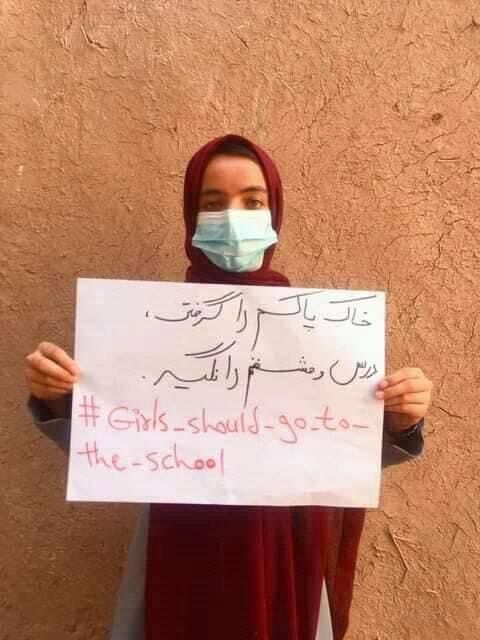 خاک پاکم را گرفتی،
درس و مشقم را نگیر.
#Girls_should_go_to_
the_school